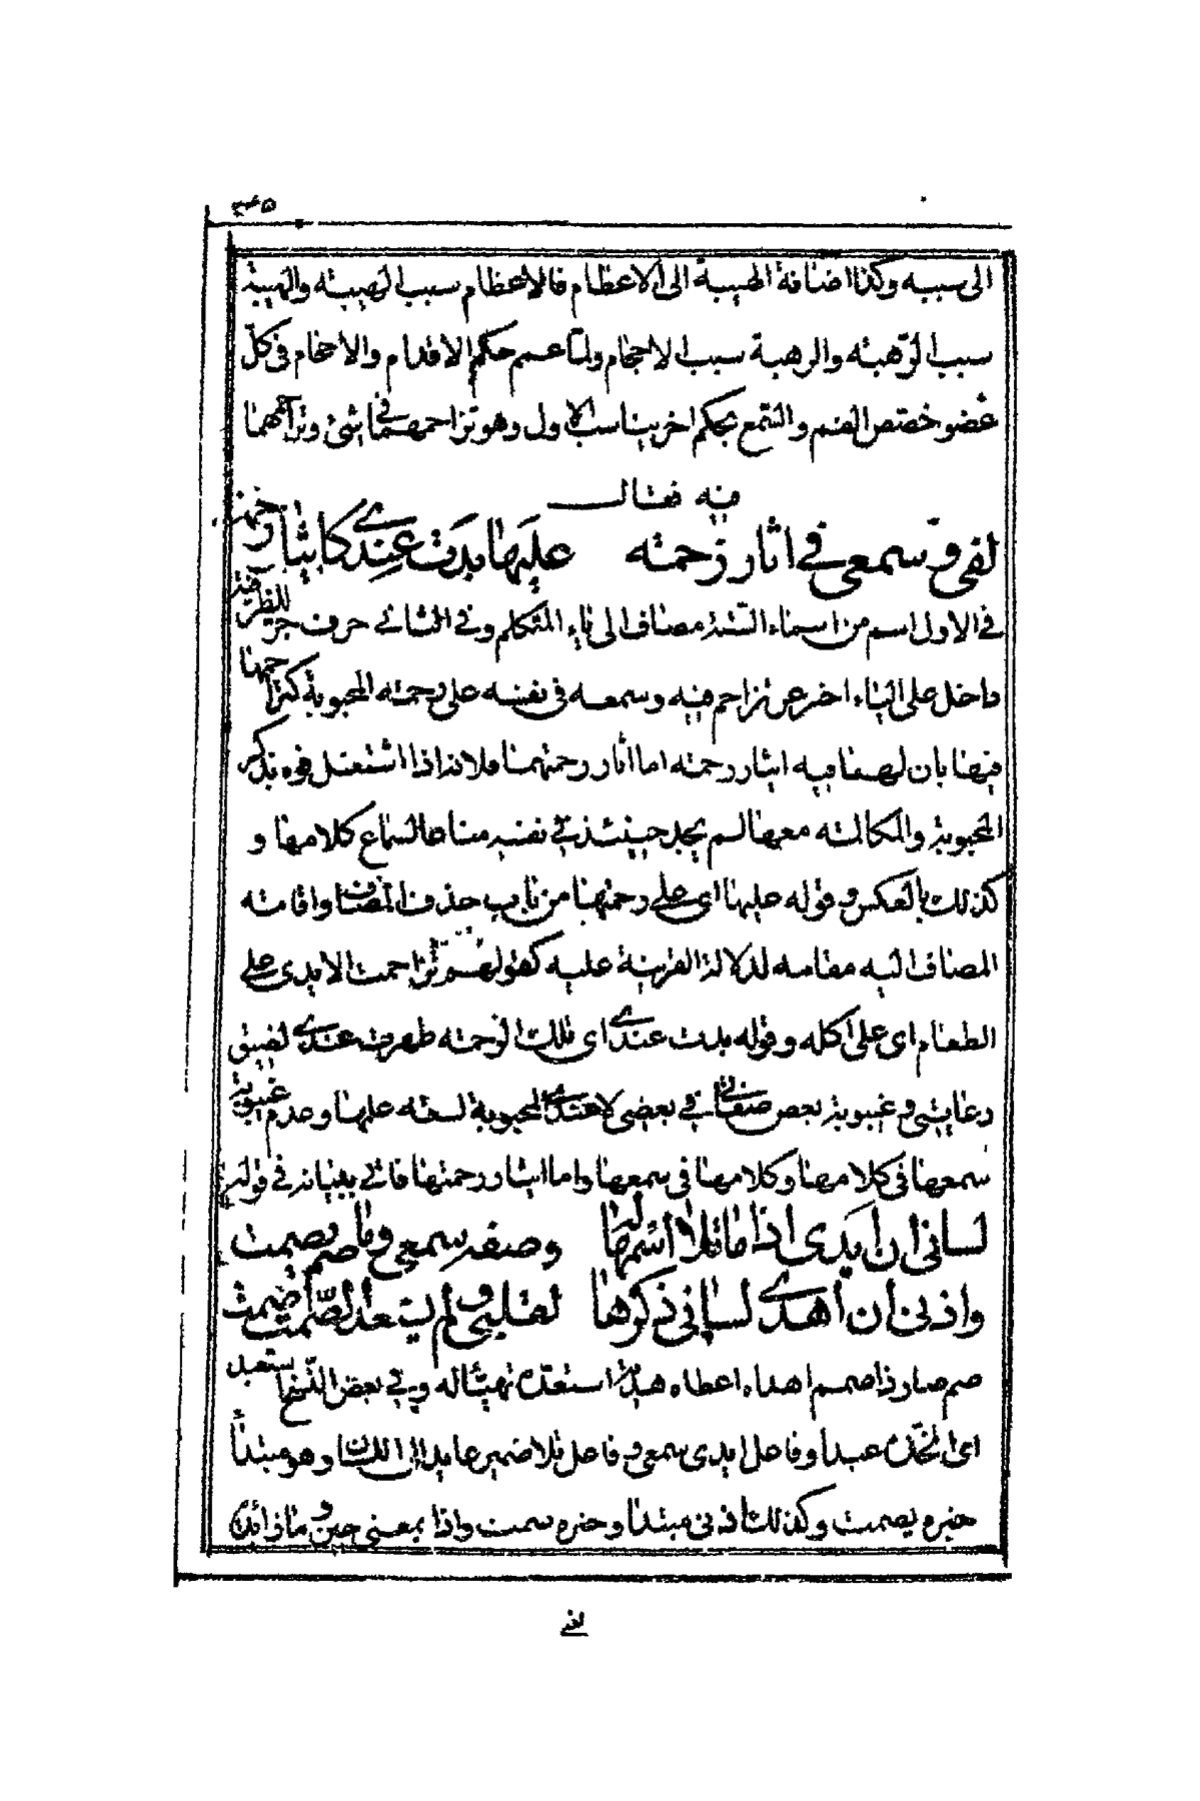 ٣٤٥
الى سببه وكذا اضافة الهيبة الى الاعظام فالاعظام سبب الهيبة والهيبة
سبب الرهبة والرهبة سبب الاحجام ولما عم حكم الاقدام والاحجام في كل
عضو خصص الفم والسمع بحكم اخر يناسب الاول وهو تزاحمهما في شئ وتزاحمهما
فيه فقال
لفي وسمعي في اثار زحمته عليها بدت عندي كايثار رحمتي
في الاول اسم من اسماء الستة مضاف الى ياء المتكلم وفي الثاني حرف جر للظرفية
داخل على الياء اخبر عن تزاحم فيه وسمعه في نفسه على رحمته المحبوبة كتراحمها
فيها بان لهما فيه ايثار رحمته اما اثار زحمتهما فلانه اذا اشتغل فوه بذكر
المحبوبة والمكالمة معها لم يجد حينئذ في نفسه مناطا لسماع كلامها و
كذلك بالعكس وقوله عليها اى على زحمتها من باب حذف المضاف واقامة
المضاف اليه مقامه لدلالة القرينة عليه كقولهم تزاحمت الايدي على
الطعام اى على اكله وقوله بدت عندي اى تلك الزحمة ظهرت عندي لضيق
رعايتي وغيبوبة بعض صفاتي في بعض لا عند المحبوبة لسعة علمها وعدم غيبوبة
سمعها في كلامها وكلامها في سمعها واما ايثار رحمتها فاتي ببيانه في قوله
لساني ان ابدى اذا ما تلا اسمها له وصفه سمعي وما صم يصمت
واذني ان اهدى لساني ذكرها لقلبي ولم يستعبد الصمت صمت
صم صار ذا صمم اهداء اعطاه هدية استعده تهيئا له وفي بعض النسخ يستعبد
اى اتخذه عبدا وفاعل ابدى سمعي وفاعل تلا ضمير عايد الى اللسان وهو مبتدأ
خبره يصمت وكذلك اذني مبتدا وخبره صمت واذا بمعنى حين وما زائدة